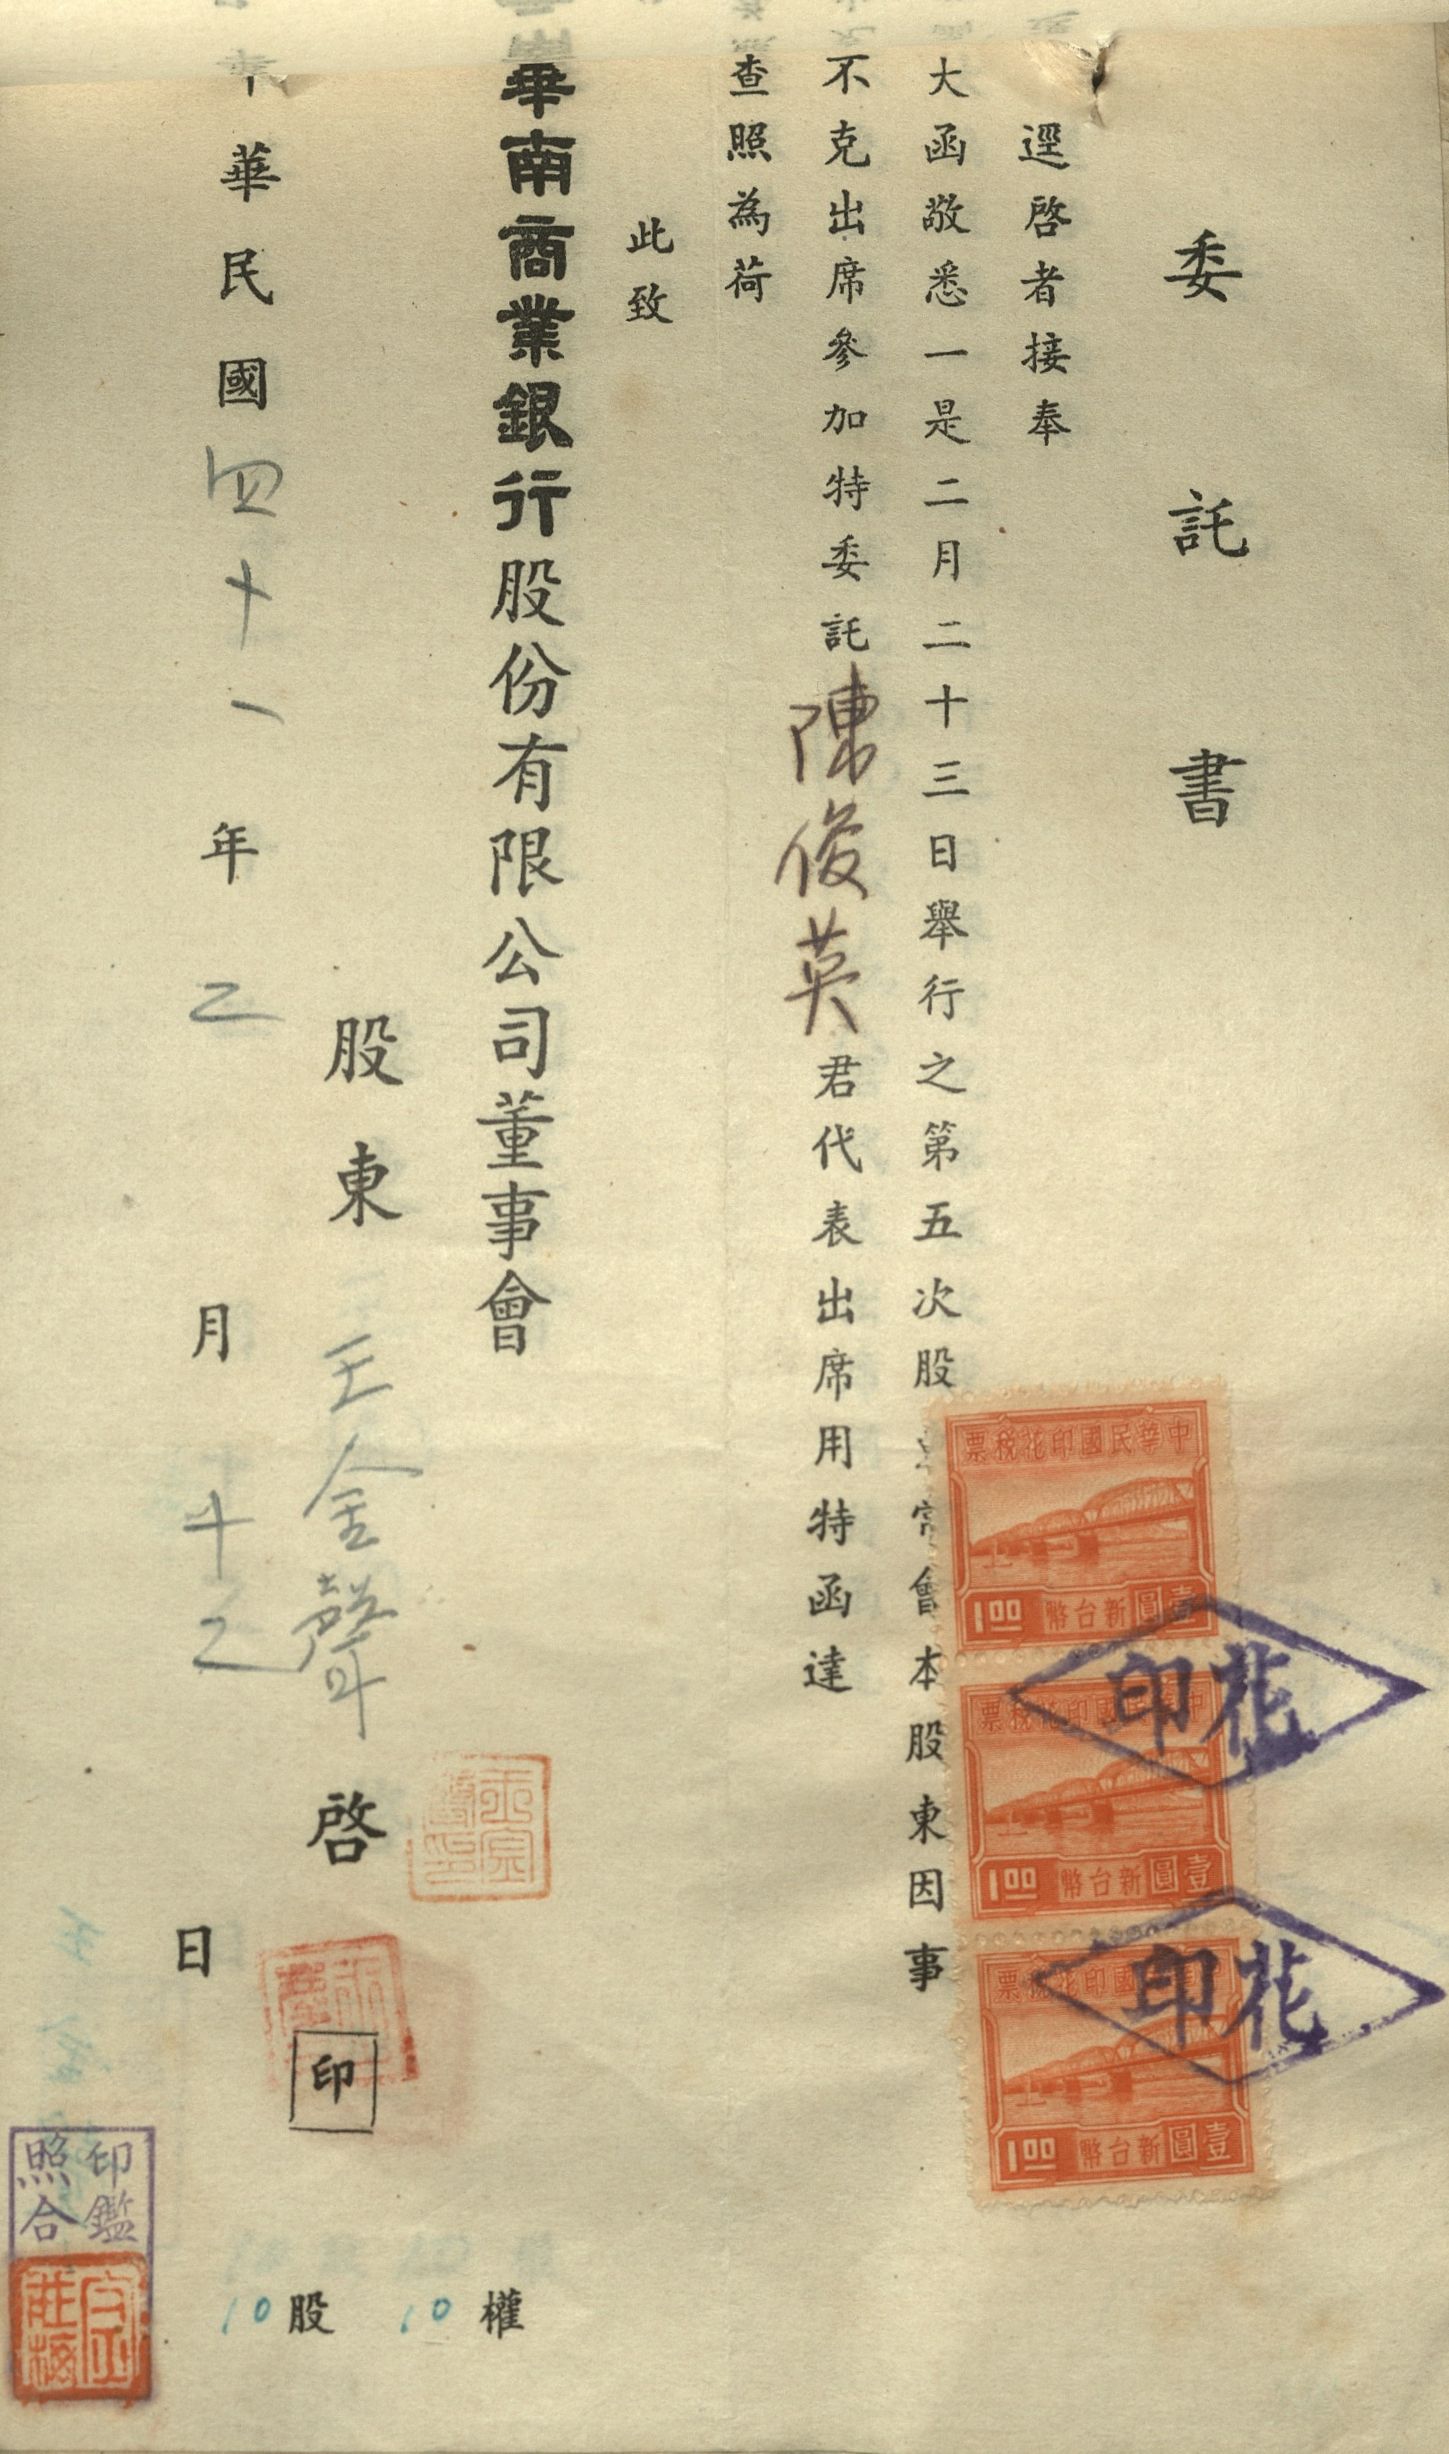 委託書
逕啓者接奉
大函敬悉一是二月二十三日舉行之第五次股常會本股東因事
不克出席參加特委託陳俊英君代表出席用特函達
查照為荷
此致
華南商業銀行股份有限公司董事會
股東王金聲啓
印
華民國四十一年二月十二日
10股 10權
中華民國印花稅票
1.00 新台幣壹圓
中華民國印花稅票
1.00 新台幣壹圓
國印花稅票
1.00 新台幣壹圓
花印
花印
印鑑
照合